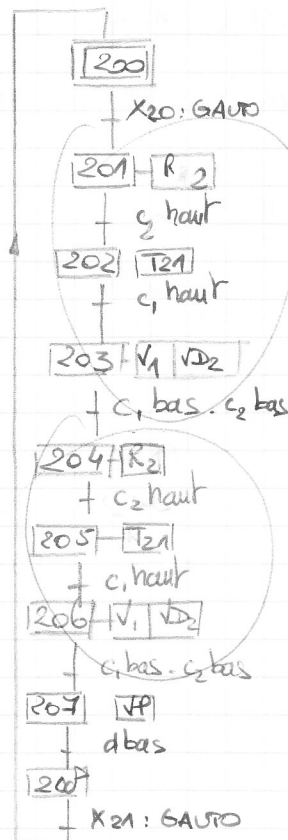 200
X20: GAUTO
201 R2
c2 haut
202 T21
c1 haut
203 V1 VD2
c1 bas . c2 bas
204 R2
c2 haut
205 T21
c1 haut
206 V1 VD2
c1 bas . c2 bas
207 VP
d bas
208
X21: GAUTO